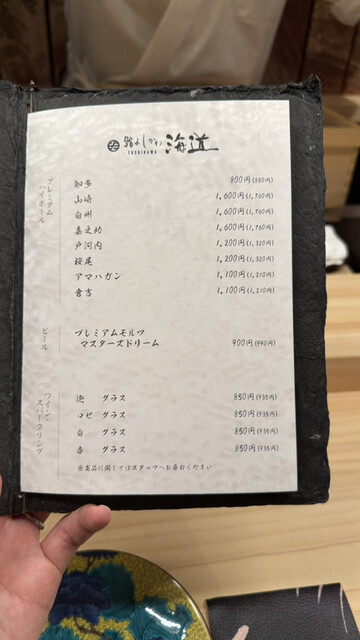 鮨よしかわ 海道
YOSHIKAWA
プレミアムハイボール
知多 800円(880円)
山崎 1,600円(1,760円)
白州 1,600円(1,760円)
嘉之助 1,600円(1,760円)
戸河内 1,200円(1,320円)
桜尾 1,200円(1,320円)
アマハガン 1,100円(1,210円)
倉吉 1,100円(1,210円)
ビール
プレミアムモルツ
マスターズドリーム 900円(990円)
ワイン・スパークリング
泡 グラス 850円(935円)
ロゼ グラス 850円(935円)
白 グラス 850円(935円)
赤 グラス 850円(935円)
※商品に関してはスタッフへお尋ねください